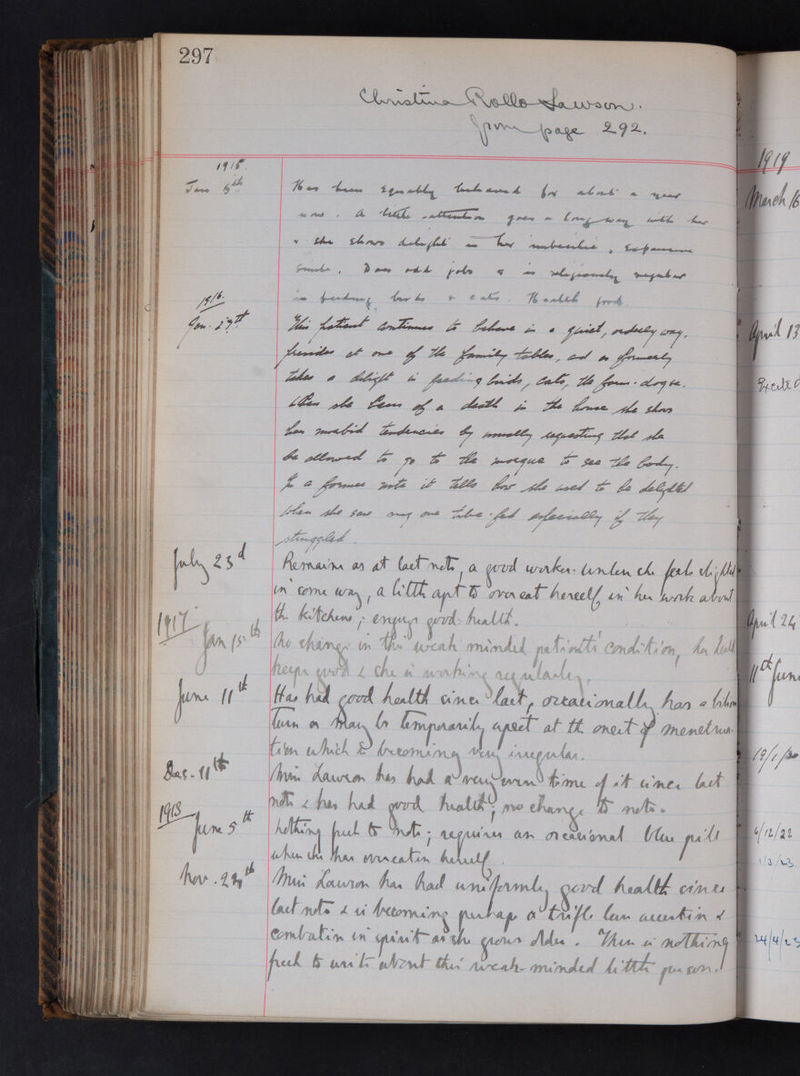 297
Christina Rollo Lawson.
from page 292.
1915.
Jan 5th Has been equably behaved for about a year
now. A little attention goes a long way with her
& she shows delight in her imbecilic, expansive
smile. Does odd jobs & is religiously regular
in feeding birds & cats. Health good.
1916.
Jan. 27th This patient continues to behave in a quiet, orderly way,
presides at one of the family tables, and as formerly
takes a delight in feeding birds, cats, the farm-dog etc.
When she hears of a death in the house she shows
her morbid tendencies by usually requesting that she
be allowed to go to the morgue to see the body.
In a former note it tells how she used to be delighted
when she saw any one tube-fed especially if they
struggled.
July 23d Remains as at last note, a good worker unless she feels slighted
in some way, a little apt to over eat herself in her work about
the kitchens; enjoys good health.
1917
Jan 15th No change in this weak minded patient's condition, her health
keeps good & she is working regularly.
June 11th Has had good health since last, occasionally has a bilious
turn or may be temporarily upset at the onset of menstrua-
tion which is becoming very irregular.
Dec. 11th Miss Lawson has had a very even time of it since last
note & has had good health; no change to note.
1918
June 5th Nothing fresh to note; requires an occasional blue pill
when she has overeaten herself.
Nov. 29th Miss Lawson has had uniformly good health since
last note & is becoming perhaps a trifle less assertive &
combative in spirit as she grows older. There is nothing
fresh to write about this weak-minded little person.
1919
March 16
April 13
April 24
11th June
19/1/20
6/12/22
1/3/23
24/4/23